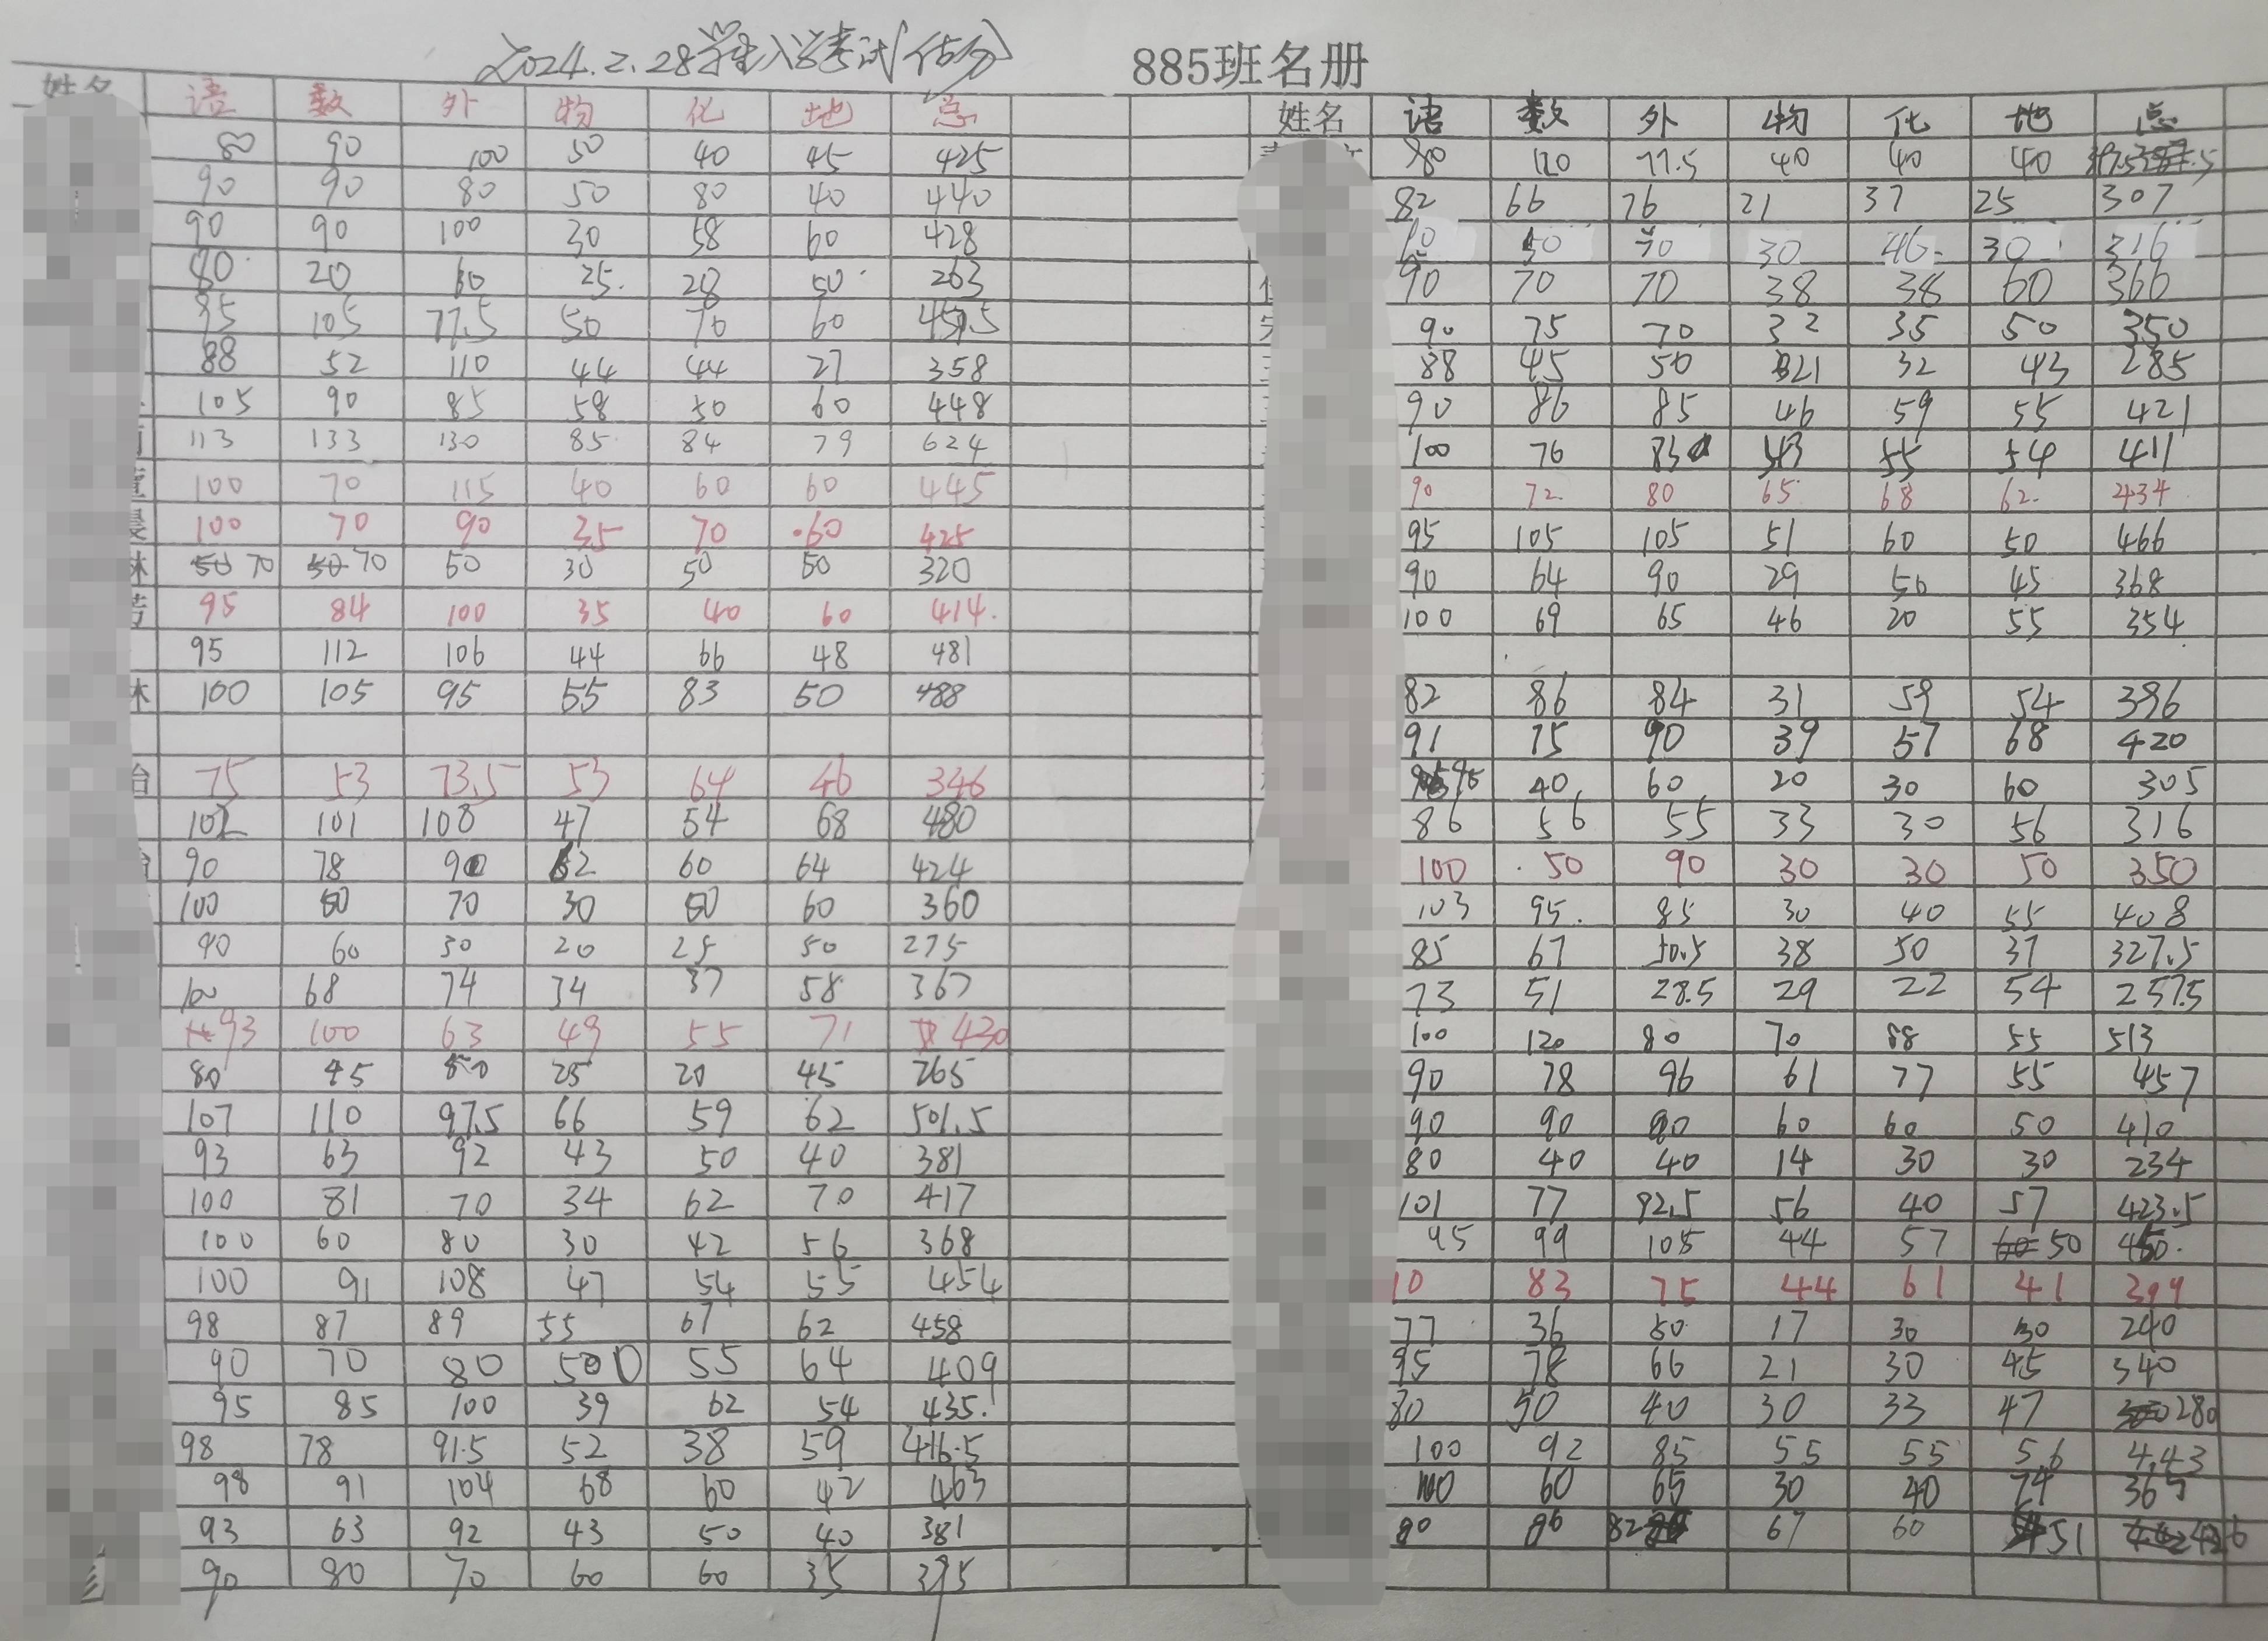 2024.2.28学生入学考试(估分) 885班名册
姓名 语 数 外 物 化 地 总
80 90 100 50 40 45 425
90 90 80 50 80 40 440
90 90 100 30 58 60 428
80 20 60 25 28 50 263
95 105 77.5 50 70 60 457.5
88 52 110 44 44 27 358
105 90 85 58 50 60 448
113 133 130 85 84 79 624
100 70 115 40 60 60 445
100 70 90 35 70 60 425
林 70 70 50 30 50 50 320
芳 95 84 100 35 40 60 414
95 112 106 44 66 48 481
林 100 105 95 55 83 50 488
75 53 73.5 53 64 46 346
102 101 108 47 54 68 480
90 78 90 62 60 64 424
100 50 70 30 50 60 360
90 60 30 20 25 50 275
100 68 74 34 37 58 367
93 100 63 49 55 71 430
80 45 50 25 20 45 265
107 110 97.5 66 59 62 501.5
93 63 92 43 50 40 381
100 81 70 34 62 70 417
100 60 80 30 42 56 368
100 91 108 47 54 55 454
98 87 89 55 67 62 458
90 70 80 50 55 64 409
95 85 100 39 62 54 435
98 78 91.5 52 38 59 416.5
98 91 104 68 60 42 463
93 63 92 43 50 40 381
90 80 70 60 60 35 395
姓名 语 数 外 物 化 地 总
80 120 77.5 40 40 40
82 66 76 21 37 25 307
50 70 30 46 30 316
90 70 70 38 38 60 366
90 75 70 32 35 50 350
88 45 50 21 32 43 285
90 86 85 46 59 55 421
100 76 83 43 55 54 411
90 72 80 65 68 62 434
95 105 105 51 60 50 466
90 64 90 29 50 45 368
100 69 65 46 20 55 354
82 86 84 31 59 54 396
91 75 90 39 57 68 420
95 40 60 20 30 60 305
86 56 55 33 30 56 316
100 50 90 30 30 50 350
103 95 85 30 40 55 408
85 67 50.5 38 50 37 327.5
73 51 28.5 29 22 54 257.5
100 120 80 70 88 55 513
90 78 96 61 77 55 457
90 90 60 60 50 410
80 40 40 14 30 30 234
101 77 92.5 56 40 57 423.5
95 99 105 44 57 50 450
83 75 44 61 41 399
77 36 50 17 30 30 240
95 78 66 21 30 45 340
80 50 40 30 33 47 280
100 92 85 55 55 56 443
100 60 65 30 40 74 369
80 86 82 67 60 51 426